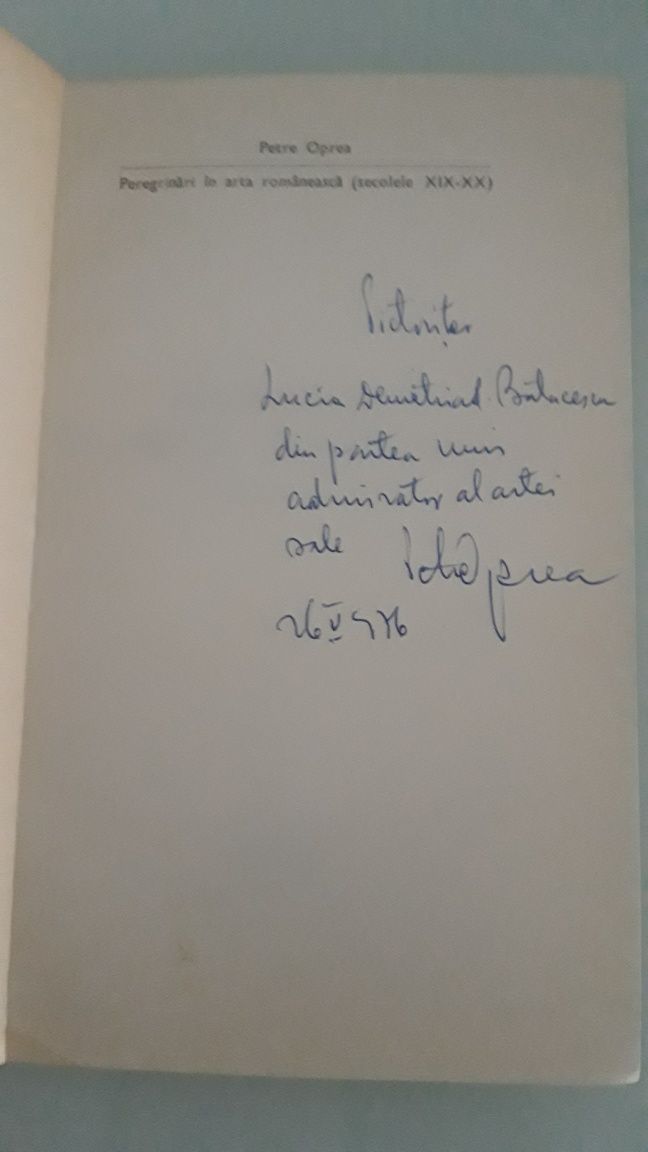 Petre Oprea
Peregrinări în arta românească (secolele XIX-XX)
Pictoriței
Lucia Demetriad Bălăcescu
din partea unui
admirator al artei
sale Petre Oprea
26 V 976